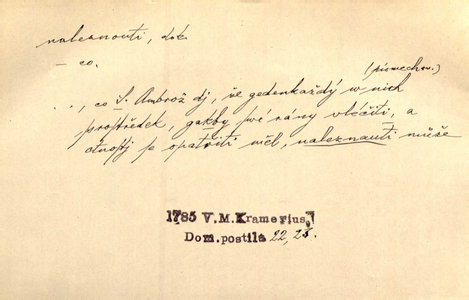 naleznouti, dok.
– co.
(písmech sv.)
..., co S. Ambrož dj, že gedenkaždý w nich
prostředek, gakby swé rány vléčiti, a
ctnostj se opatřiti měl, naleznauti může
1785 V.M.Kramerius,
Dom.postila 22, 23.